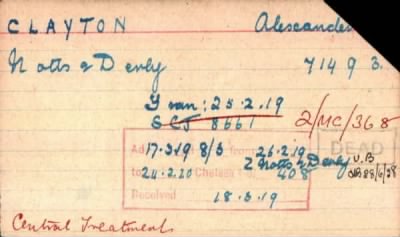 CLAYTON Alexander
Notts & Derby 71493.
Gran: 25.2.19
SCJ 8661 2/MC/368
DEAD
17.3.19 8/3 26.2.19
2 Notts & Derby U.B
to Chelsea 408 28/6/38
24.2.20
Received 18.3.19
Central Treatment